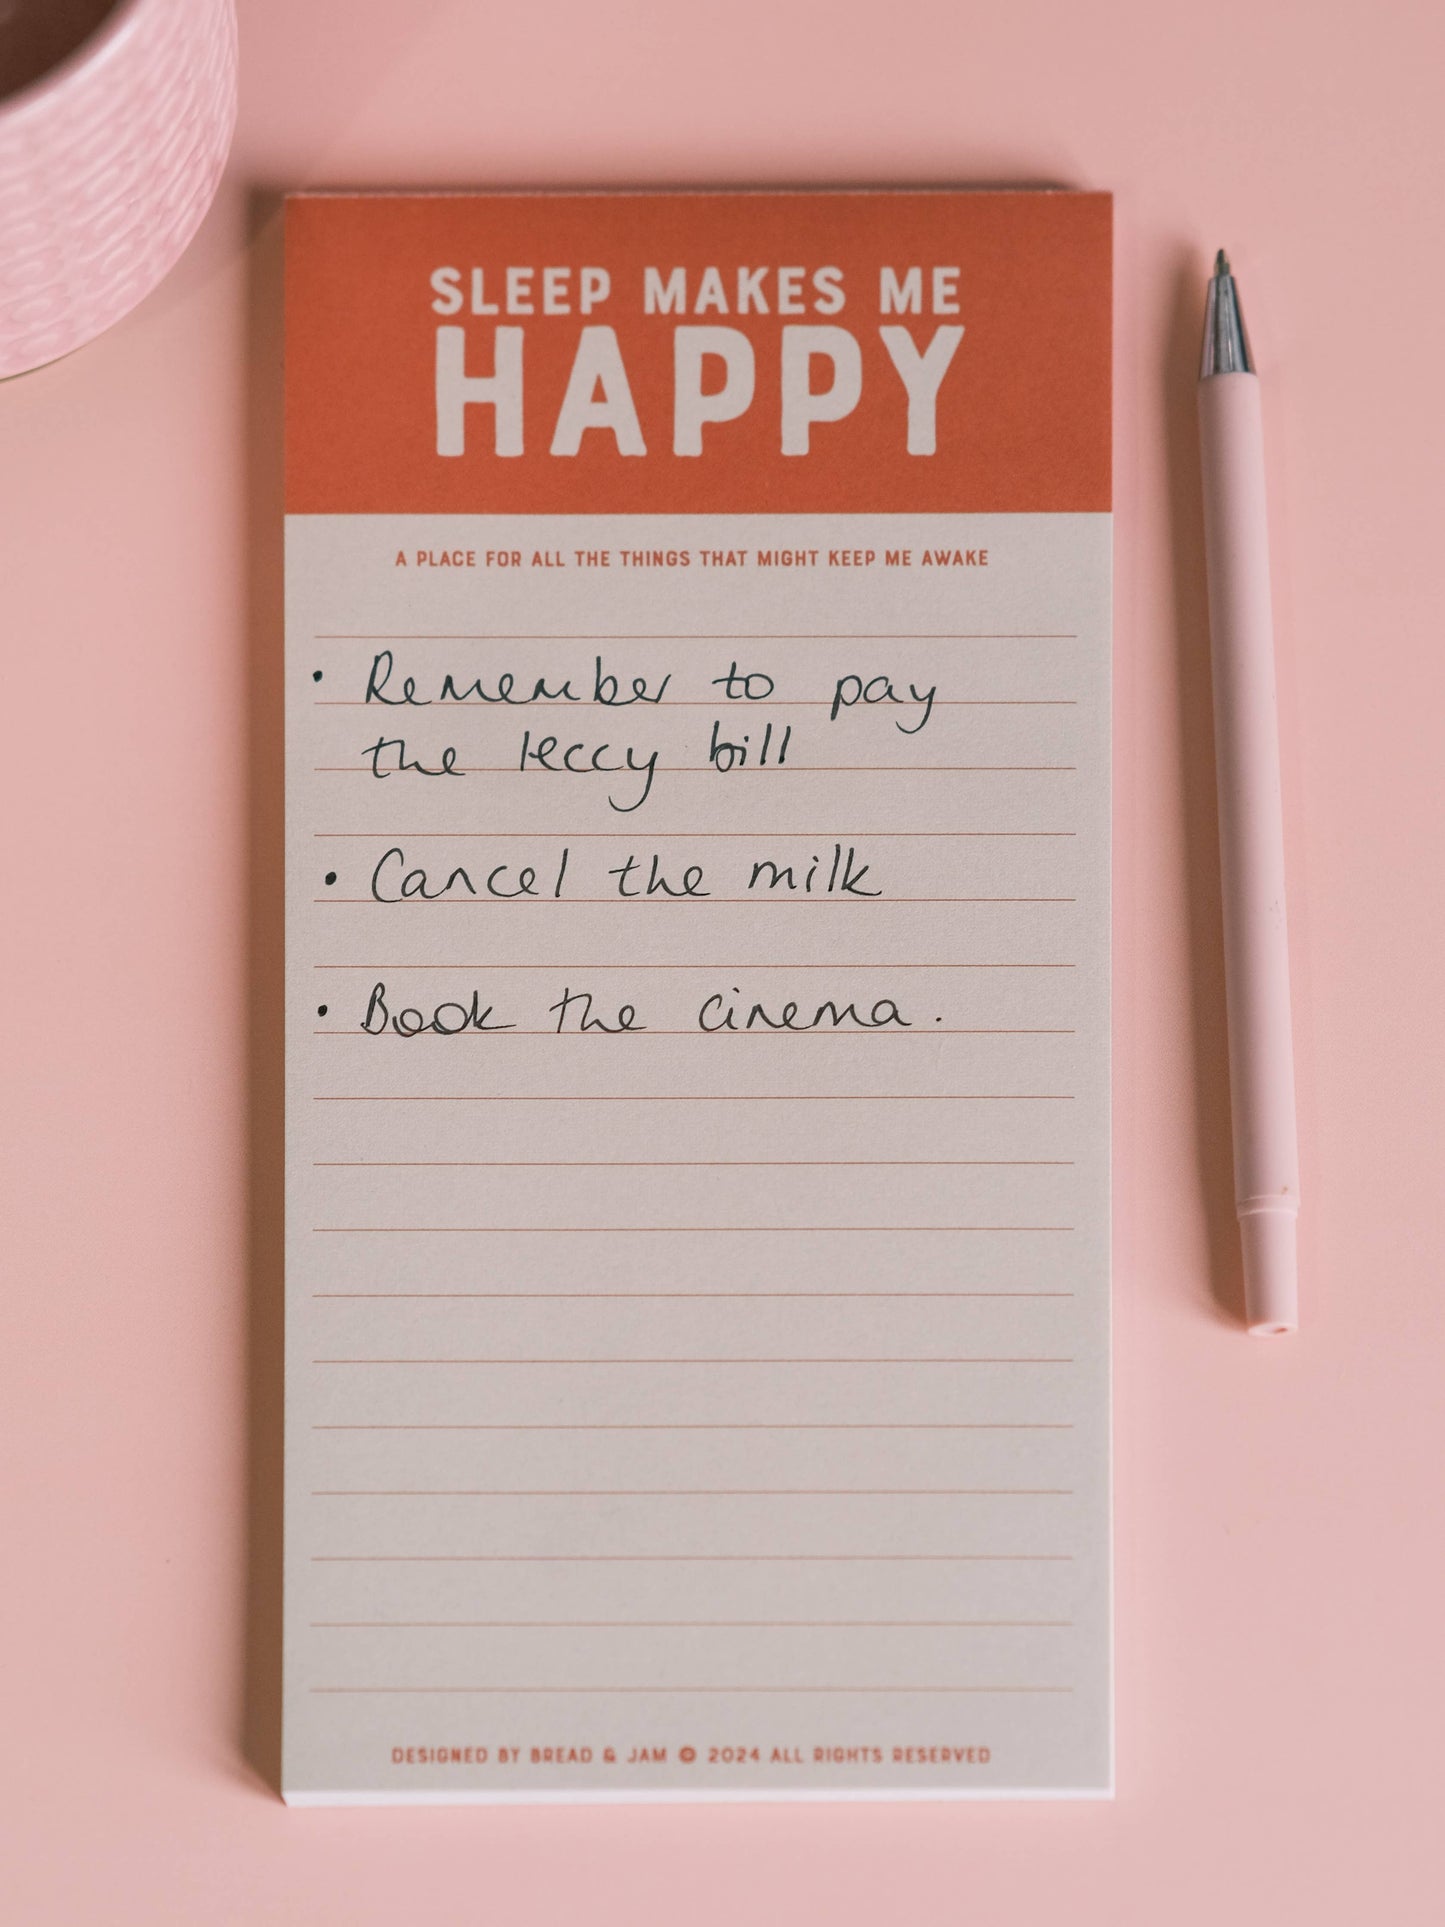 SLEEP MAKES ME
HAPPY
A PLACE FOR ALL THE THINGS THAT MIGHT KEEP ME AWAKE
• Remember to pay
the leccy bill
• Cancel the milk
• Book the cinema.
DESIGNED BY BREAD & JAM © 2024 ALL RIGHTS RESERVED